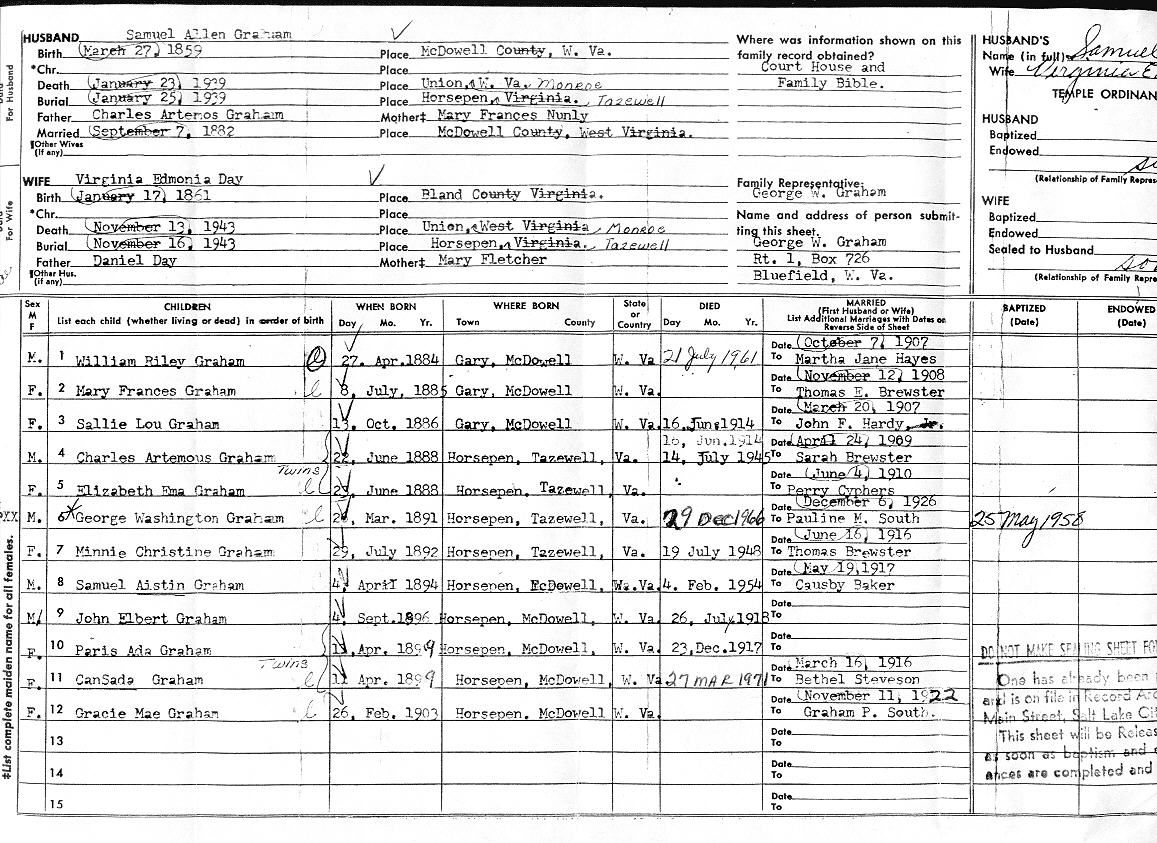 HUSBAND Samuel Allen Graham
Birth March 27, 1859 Place McDowell County, W. Va.
*Chr. Place
Death January 23, 1939 Place Union, W. Va. Monroe
Burial January 25, 1939 Place Horsepen, Virginia. Tazewell
Father Charles Artemos Graham Mother‡ Mary Frances Nunly
Married September 7, 1882 Place McDowell County, West Virginia.
¶Other Wives
(if any)
Where was information shown on this
family record obtained?
Court House and
Family Bible.
WIFE Virginia Edmonia Day
Birth January 17, 1861 Place Bland County Virginia.
*Chr. Place
Death November 13, 1943 Place Union, West Virginia, Monroe
Burial November 16, 1943 Place Horsepen, Virginia. Tazewell
Father Daniel Day Mother‡ Mary Fletcher
¶Other Hus.
(if any)
Family Representative:
George W. Graham
Name and address of person submit-
ting this sheet.
George W. Graham
Rt. 1, Box 726
Bluefield, W. Va.
HUSBAND'S
Name (in full) Samuel
Wife Virginia E.
TEMPLE ORDINAN
HUSBAND
Baptized
Endowed
(Relationship of Family Repres
WIFE
Baptized
Endowed
Sealed to Husband
(Relationship of Family Repres
For Husband
For Wife
Sex M F CHILDREN List each child (whether living or dead) in order of birth WHEN BORN Day Mo. Yr. WHERE BORN Town County State or Country DIED Day Mo. Yr. MARRIED (First Husband or Wife) List Additional Marriages with Dates on Reverse Side of Sheet BAPTIZED (Date) ENDOWED (Date)
Date October 7, 1907
M. 1 William Riley Graham 27. Apr. 1884 Gary, McDowell W. Va 21 July 1961 To Martha Jane Hayes
Date November 12, 1908
F. 2 Mary Frances Graham 8, July, 1885 Gary, McDowell W. Va. To Thomas E. Brewster
Date March 20, 1907
F. 3 Sallie Lou Graham 13, Oct. 1886 Gary, McDowell W. Va. 16, Jun. 1914 To John F. Hardy, Jr.
16, Jun. 1914 Date April 24, 1909
M. 4 Charles Artemous Graham 22, June 1888 Horsepen, Tazewell, Va. 14, July 1945 To Sarah Brewster
Twins Date June 4, 1910
F. 5 Elizabeth Ema Graham June 1888 Horsepen, Tazewell, Va. To Perry Cyphers
Date December 6, 1926
M. 6 George Washington Graham Mar. 1891 Horsepen, Tazewell, Va. 29 Dec 1966 To Pauline M. South 25 May 1958
Date June 16, 1916
F. 7 Minnie Christine Graham 29, July 1892 Horsepen, Tazewell, Va. 19 July 1948 To Thomas Brewster
Date May 19, 1917
M. 8 Samuel Aistin Graham 4, April 1894 Horsepen, McDowell, W. Va. 4. Feb. 1954 To Causby Baker
Date
M/ 9 John Elbert Graham 4, Sept. 1896 Horsepen, McDowell, W. Va. 26, July 1918 To
Date
F. 10 Paris Ada Graham Apr. 1899 Horsepen, McDowell, W. Va. 23, Dec. 1917 To
Twins Date March 16, 1916
F. 11 CanSada Graham Apr. 1899 Horsepen, McDowell, W. Va 27 MAR 1971 To Bethel Steveson
Date November 11, 1922
F. 12 Gracie Mae Graham 26, Feb. 1903 Horsepen. McDowell W. Va. To Graham P. South.
13 Date
To
14 Date
To
15 Date
To
DO NOT MAKE SEALING SHEET FO
One has already been
and is on file in Record Arc
Main Street, Salt Lake Cit
This sheet will be Releas
as soon as baptism and
ances are completed and
‡List complete maiden name for all females.